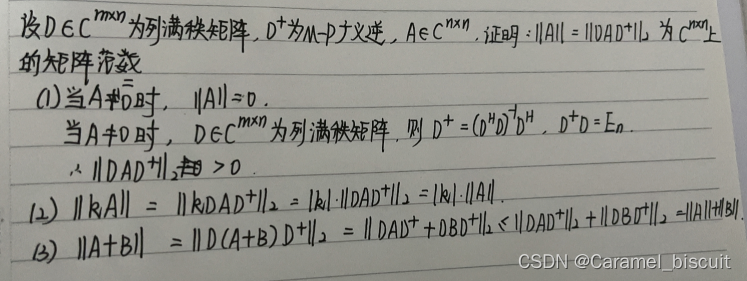 设D∈C^{m×n}为列满秩矩阵,D⁺为M-P广义逆,A∈C^{n×n},证明:||A||=||DAD⁺||₂为C^{n×n}上
的矩阵范数
(1)当A=0时,||A||=0.
当A≠0时,D∈C^{m×n}为列满秩矩阵,则D⁺=(DᴴD)⁻¹Dᴴ,D⁺D=Eₙ.
∴||DAD⁺||₂>0.
(2)||kA||=||kDAD⁺||₂=|k|·||DAD⁺||₂=|k|·||A||.
(3)||A+B||=||D(A+B)D⁺||₂=||DAD⁺+DBD⁺||₂≤||DAD⁺||₂+||DBD⁺||₂=||A||+||B||.
CSDN @Caramel_biscuit